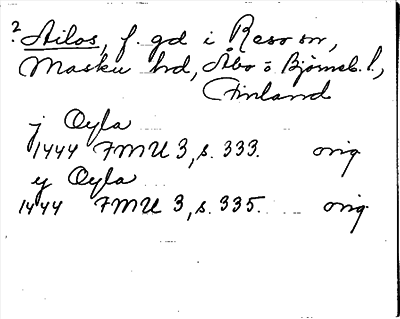 ? Ailos, f. gd i Reso sn,
Masku hd, Åbo o Björneb. l.,
Finland
j Oyla
1444 FMU 3, s. 333. orig
y Oyla
1444 FMU 3, s. 335. orig.